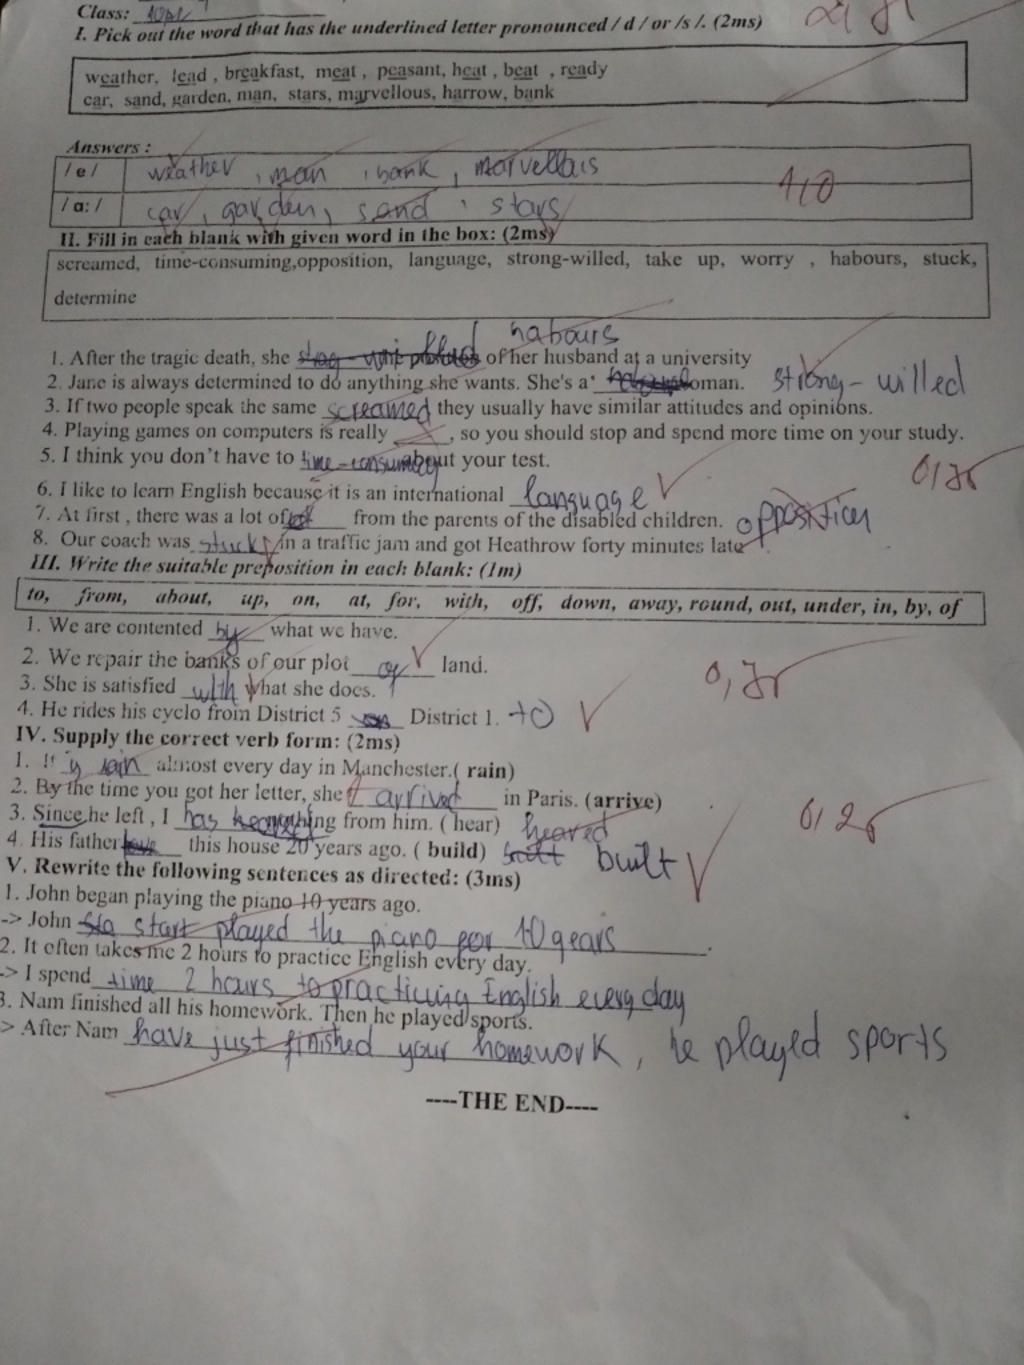 Class: 10A
I. Pick out the word that has the underlined letter pronounced / d / or /s /. (2ms)
weather, lead , breakfast, meat , peasant, heat , beat , ready
car, sand, garden, man, stars, marvellous, harrow, bank
Answers :
/ e / weather , man , bank , marvellous
/ ɑ: / car , garden, sand , stars
1,0
II. Fill in each blank with given word in the box: (2ms)
screamed, time-consuming,opposition, language, strong-willed, take up, worry , habours, stuck,
determine
1. After the tragic death, she habours of her husband at a university
2. Jane is always determined to do anything she wants. She's a oman. strong-willed
3. If two people speak the same screamed they usually have similar attitudes and opinions.
4. Playing games on computers is really , so you should stop and spend more time on your study.
5. I think you don't have to time-consuming about your test.
0,75
6. I like to learn English because it is an international language
7. At first , there was a lot of from the parents of the disabled children. opposition
8. Our coach was stuck in a traffic jam and got Heathrow forty minutes late
III. Write the suitable preposition in each blank: (1m)
to, from, about, up, on, at, for, with, off, down, away, round, out, under, in, by, of
1. We are contented by what we have.
2. We repair the banks of our plot of land.
3. She is satisfied with what she does.
0,75
4. He rides his cyclo from District 5 District 1. to
IV. Supply the correct verb form: (2ms)
1. It rain almost every day in Manchester.( rain)
2. By the time you got her letter, she arrived in Paris. (arrive)
3. Since he left , I has anything from him. ( hear) heared
0,25
4. His father this house 20 years ago. ( build) built
V. Rewrite the following sentences as directed: (3ms)
1. John began playing the piano 10 years ago.
-> John start played the piano for 10 years .
2. It often takes me 2 hours to practice English every day.
-> I spend time 2 hours to practicing English every day
3. Nam finished all his homework. Then he played sports.
> After Nam have just finished your homework, he played sports
----THE END----